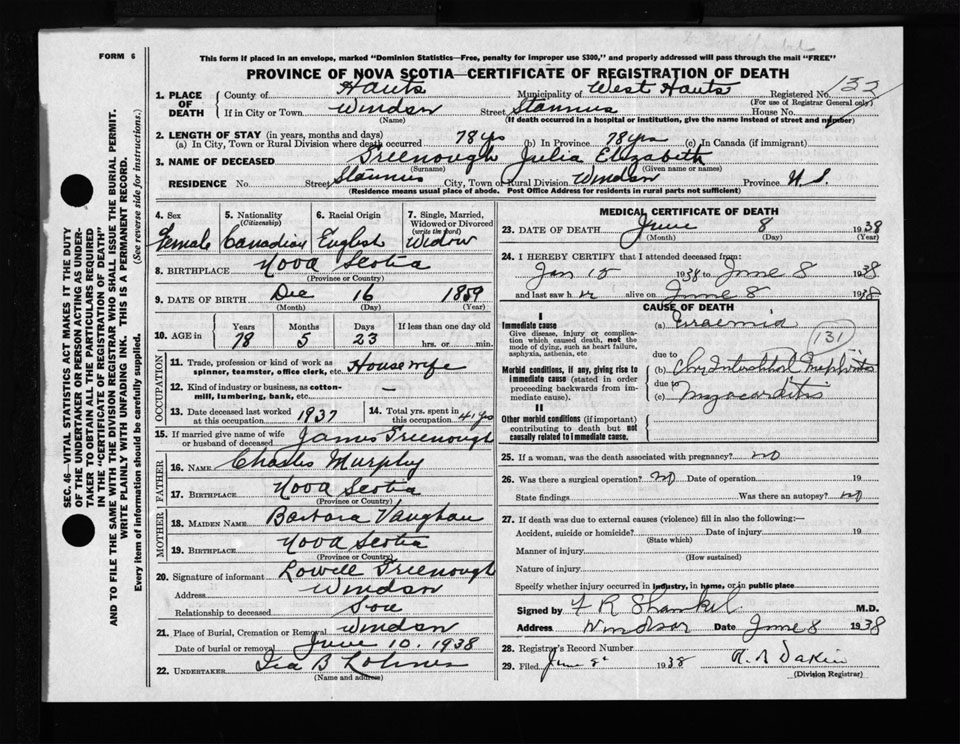 FORM 6
This form if placed in an envelope, marked "Dominion Statistics—Free, penalty for improper use $300," and properly addressed will pass through the mail "FREE"
PROVINCE OF NOVA SCOTIA—CERTIFICATE OF REGISTRATION OF DEATH
SEC. 46—VITAL STATISTICS ACT MAKES IT THE DUTY
OF THE UNDERTAKER OR PERSON ACTING AS UNDER-
TAKER TO OBTAIN ALL THE PARTICULARS REQUIRED
IN THE "CERTIFICATE OF REGISTRATION OF DEATH"
AND TO FILE THE SAME WITH THE DIVISION REGISTRAR WHO SHALL ISSUE THE BURIAL PERMIT.
WRITE PLAINLY WITH UNFADING INK. THIS IS A PERMANENT RECORD.
Every item of information should be carefully supplied. (See reverse side for instructions.)
1. PLACE OF DEATH County of Hants Municipality of West Hants Registered No. 133
(For use of Registrar General only)
If in City or Town Windsor Street Stannus House No.
(Name) (If death occurred in a hospital or institution, give the name instead of street and number)
2. LENGTH OF STAY (in years, months and days)
(a) In City, Town or Rural Division where death occurred 78 yrs (b) In Province 78 yrs (c) In Canada (if immigrant)
3. NAME OF DECEASED Greenough Julia Elizabeth
(Surname) (Given name or names)
RESIDENCE No. Street Stannus City, Town or Rural Division Windsor Province N.S.
(Residence means usual place of abode. Post Office Address for residents in rural parts not sufficient)
4. Sex Female
5. Nationality (Citizenship) Canadian
6. Racial Origin English
7. Single, Married, Widowed or Divorced (write the word) Widow
8. BIRTHPLACE Nova Scotia
(Province or Country)
9. DATE OF BIRTH Dec 16 1859
(Month) (Day) (Year)
10. AGE in Years 78 Months 5 Days 23 If less than one day old hrs. or min.
OCCUPATION
11. Trade, profession or kind of work as spinner, teamster, office clerk, etc. Housewife
12. Kind of industry or business, as cotton-mill, lumbering, bank, etc. —
13. Date deceased last worked at this occupation 1937
14. Total yrs. spent in this occupation 41 yrs
15. If married give name of wife or husband of deceased James Greenough
FATHER
16. NAME Charles Murphy
17. BIRTHPLACE Nova Scotia
(Province or Country)
MOTHER
18. MAIDEN NAME Barbara Vaughan
19. BIRTHPLACE Nova Scotia
(Province or Country)
20. Signature of informant Lowell Greenough
Address Windsor
Relationship to deceased Son
21. Place of Burial, Cremation or Removal Windsor
Date of burial or removal June 10, 1938
22. UNDERTAKER Ira B
(Name and address)
MEDICAL CERTIFICATE OF DEATH
23. DATE OF DEATH June 8 1938
(Month) (Day) (Year)
24. I HEREBY CERTIFY that I attended deceased from:
Jan 15 1938 to June 8 1938
and last saw her alive on June 8 1938
CAUSE OF DEATH
I
Immediate cause
Give disease, injury or complication which caused death, not the mode of dying, such as heart failure, asphyxia, asthenia, etc
(a) Uraemia
131
due to
Morbid conditions, if any, giving rise to immediate cause (stated in order proceeding backwards from immediate cause).
(b) Chr Interstitial Nephritis
due to
(c) Myocarditis
II
Other morbid conditions (if important) contributing to death but not causally related to immediate cause.
25. If a woman, was the death associated with pregnancy? no
26. Was there a surgical operation? no Date of operation 19
State findings Was there an autopsy? no
27. If death was due to external causes (violence) fill in also the following:—
Accident, suicide or homicide? Date of injury 19
(State which)
Manner of injury
(How sustained)
Nature of injury
Specify whether injury occurred in industry, in home, or in public place
Signed by F R Shankel M.D.
Address Windsor Date June 8 1938
28. Registrar's Record Number
29. Filed June 8 1938 Dakin
(Division Registrar)